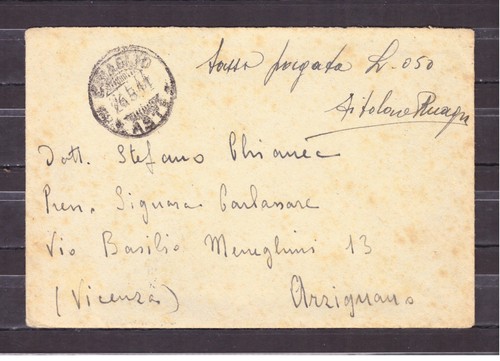 24.5.41
tassa pagata L. 050
Dott. Stefano Chianea
Pres. Signora Carlassare
Via Basilio Meneghini 13
(Vicenza) Arzignano